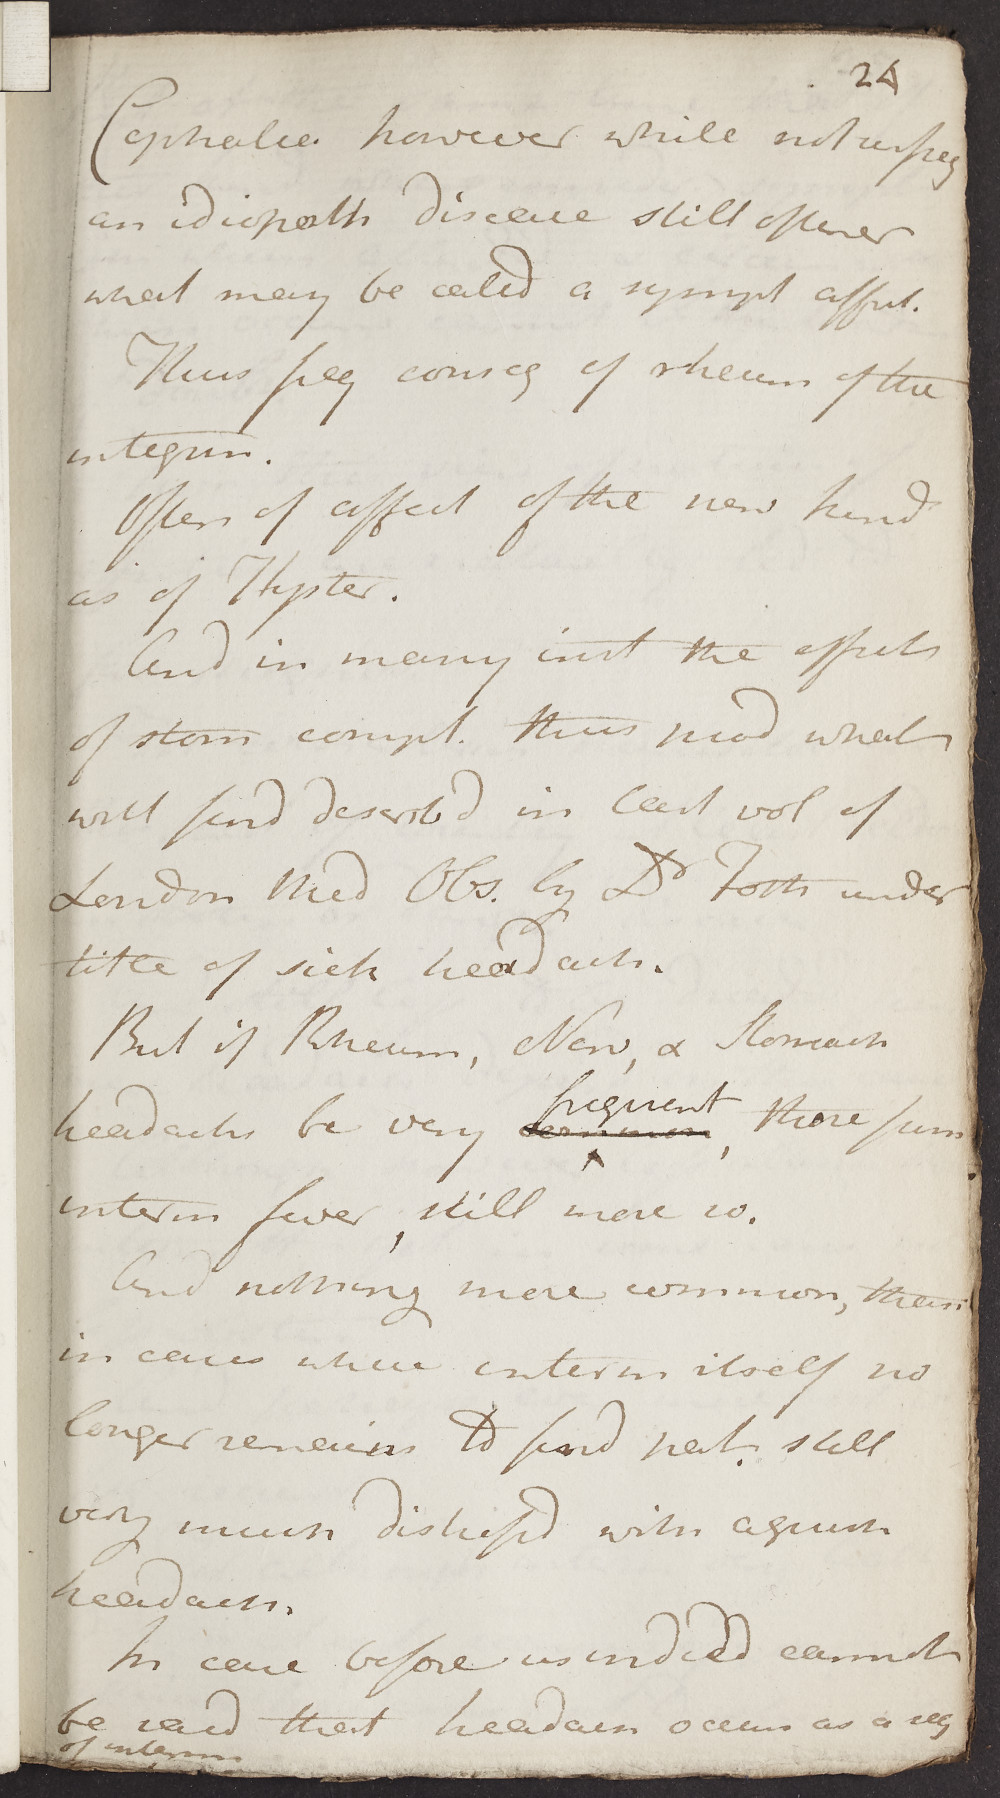 24
Cephalea however while not unfreq
an idiopath disease still oftener
what may be called a sympt affect.
Thus freq conseq of rheum of the
integum.
Often of affect of the nerv kind
as of Hyster.
And in many inst the effects
of stom compl. thus prod what
will find describ'd in last vol of
London Med Obs. by Dr Foth under
title of sick headach.
But if Rheum, Nerv, & Stomach
headachs be very common frequent, those from
interm fever, still more so.
And nothing more common, than
in cases where interm itself no
longer remains to find pat. still
very much distress'd with aguish
headach.
In case before us indeed cannot
be said that headach occurs as a seq
of interm